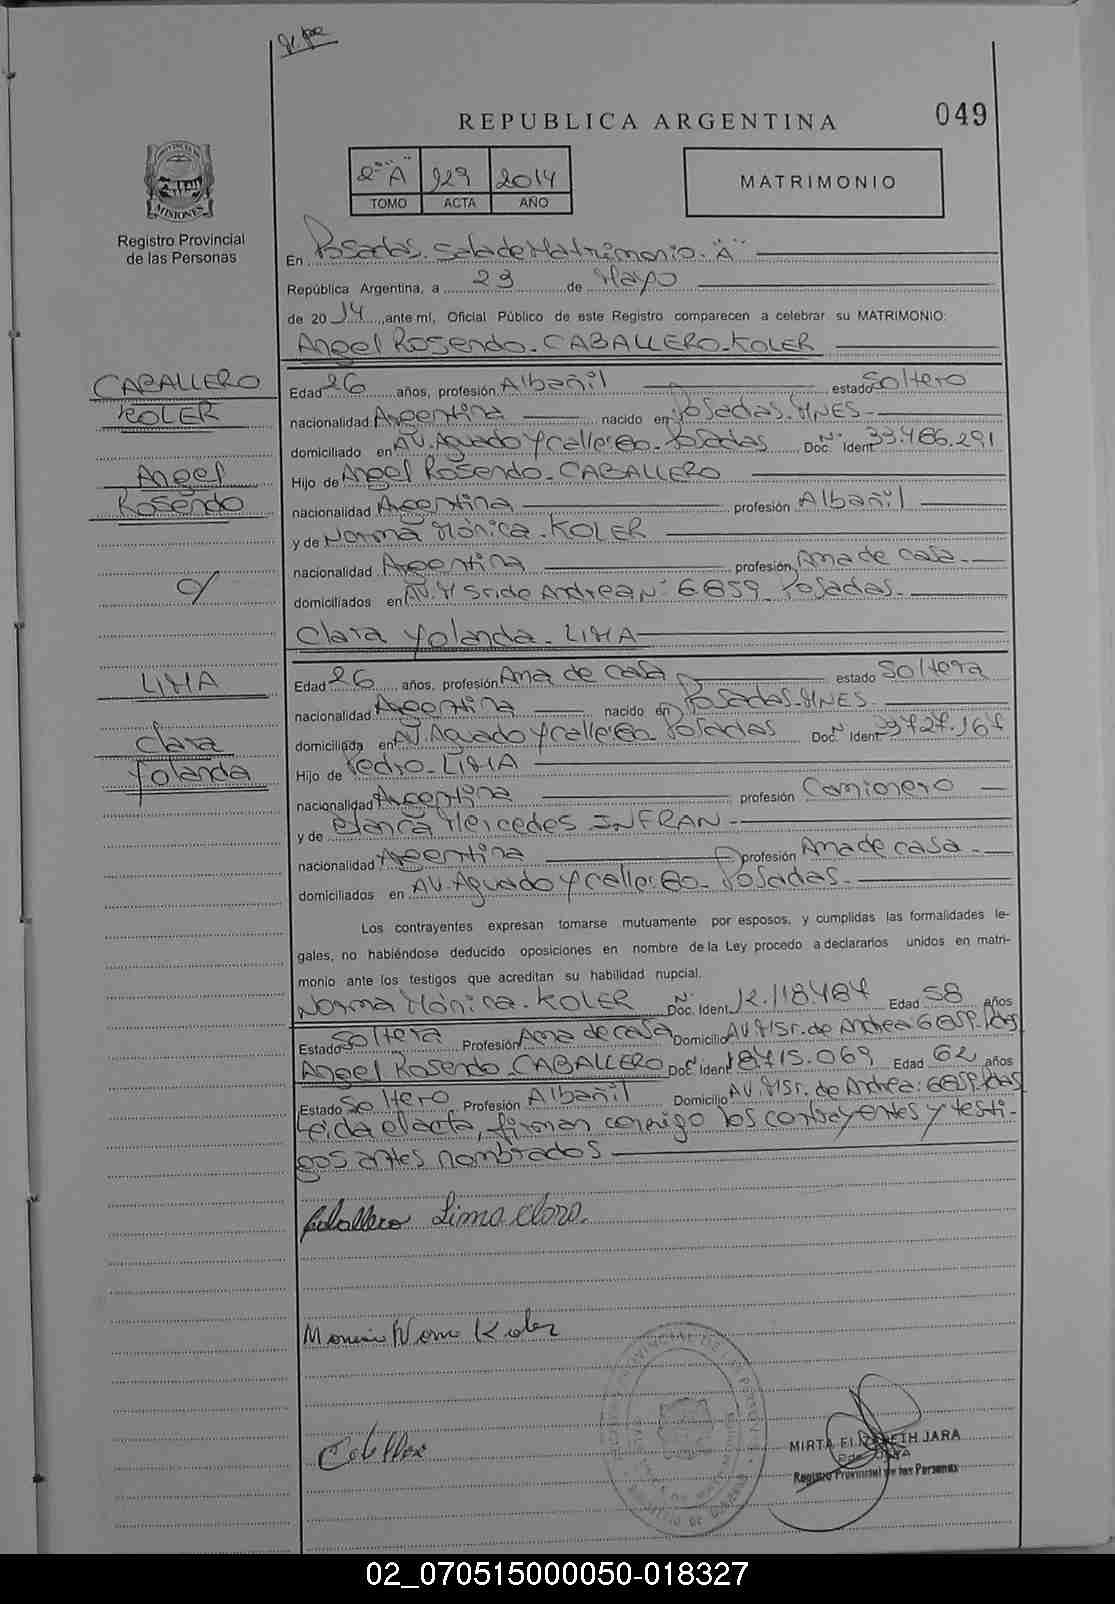 REPUBLICA ARGENTINA
049
2º "A" 129 2014
TOMO ACTA AÑO
MATRIMONIO
PROVINCIA DE
MISIONES
Registro Provincial
de las Personas
En Posadas. Sala de Matrimonio. "A"
República Argentina, a 23 de Mayo
de 2014, ante mí, Oficial Público de este Registro comparecen a celebrar su MATRIMONIO:
Angel Rosendo. CABALLERO. KOLER
CABALLERO
KOLER
Angel
Rosendo
c/
LIMA
Clara
Yolanda
Edad 26 años, profesión Albañil estado Soltero
nacionalidad Argentina nacido en Posadas. MNES.
domiciliado en AV. Aguado y calle: 80. Posadas Doc. Nº Ident 33.486.291
Hijo de Angel Rosendo. CABALLERO
nacionalidad Argentina profesión Albañil
y de Norma Mónica. KOLER
nacionalidad Argentina profesión, Ama de casa.
domiciliados en AV. M Sr. de Andrea Nº 6859. Posadas.
Clara Yolanda. LIMA
Edad 26 años, profesión Ama de casa estado Soltera
nacionalidad Argentina nacido en Posadas. MNES
domiciliada en AV. Aguado y calle: 80. Posadas Doc. Nº Ident 33.727.167
Hijo de Pedro. LIMA
nacionalidad Argentina profesión Camionero
y de Blanca Mercedes INFRAN.
nacionalidad Argentina profesión Ama de casa.
domiciliados en AV. Aguado y calle: 80. Posadas.
Los contrayentes expresan tomarse mutuamente por esposos, y cumplidas las formalidades le-
gales, no habiéndose deducido oposiciones en nombre de la Ley procedo a declararlos unidos en matri-
monio ante los testigos que acreditan su habilidad nupcial.
Norma Mónica. KOLER Doc. Nº Ident. 12.118.487 Edad 58 años
Estado Soltera Profesión Ama de casa Domicilio AV. M Sr. de Andrea 6859. Pdas
Angel Rosendo. CABALLERO Doc. Nº Ident 8.715.069 Edad 62 años
Estado Soltero Profesión Albañil Domicilio AV. M Sr. de Andrea: 6859. Pdas
Leída el acta, firman conmigo los contrayentes y testi-
gos antes nombrados
Caballero Lima Clara.
Koler
MIRTA ELIZABETH JARA
Registro Provincial de las Personas
02_070515000050-018327